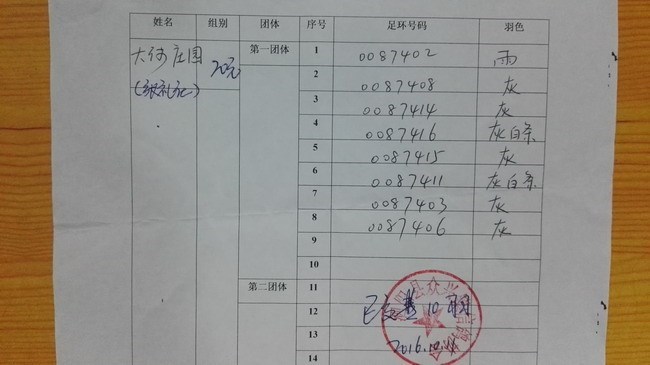 姓名 组别 团体 序号 足环号码 羽色
大河庄园 70元 第一团体 1 0087402 雨
2 0087408 灰
3 0087414 灰
4 0087416 灰白条
5 0087415 灰
6 0087411 灰白条
7 0087403 灰
8 0087406 灰
9
10
第二团体 11
12 10羽
13 2016.10.11
14